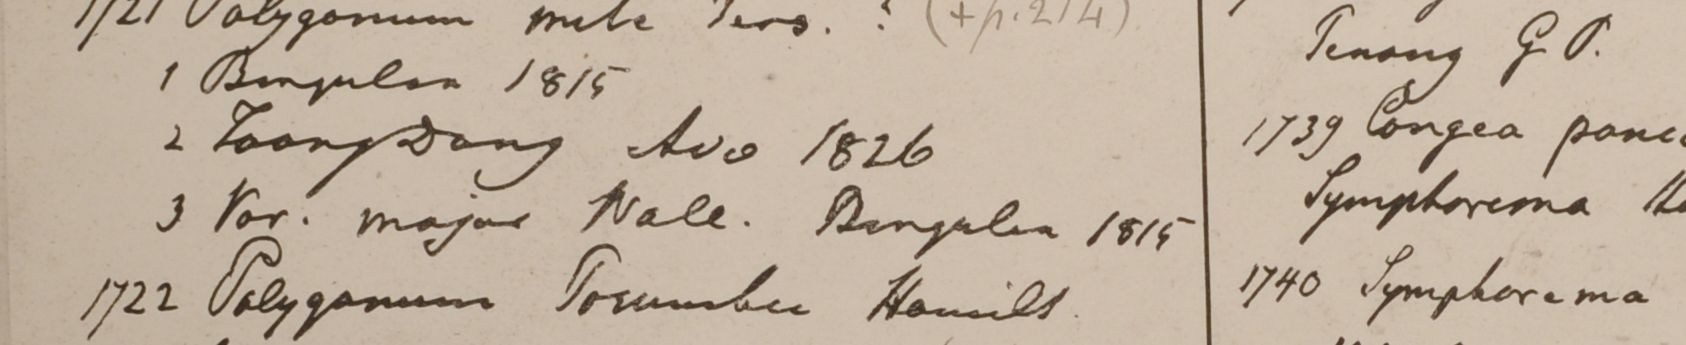 1721 Polygonum mite Pers. ? (+p.214)
1 Bengalen 1815
2 Toong Dong Ava 1826
3 Var. major Wall. Bengalen 1815
1722 Polygonum Posumbu Hamilt.
Penang G P.
1739 Congea
Symphorema
1740 Symphorema